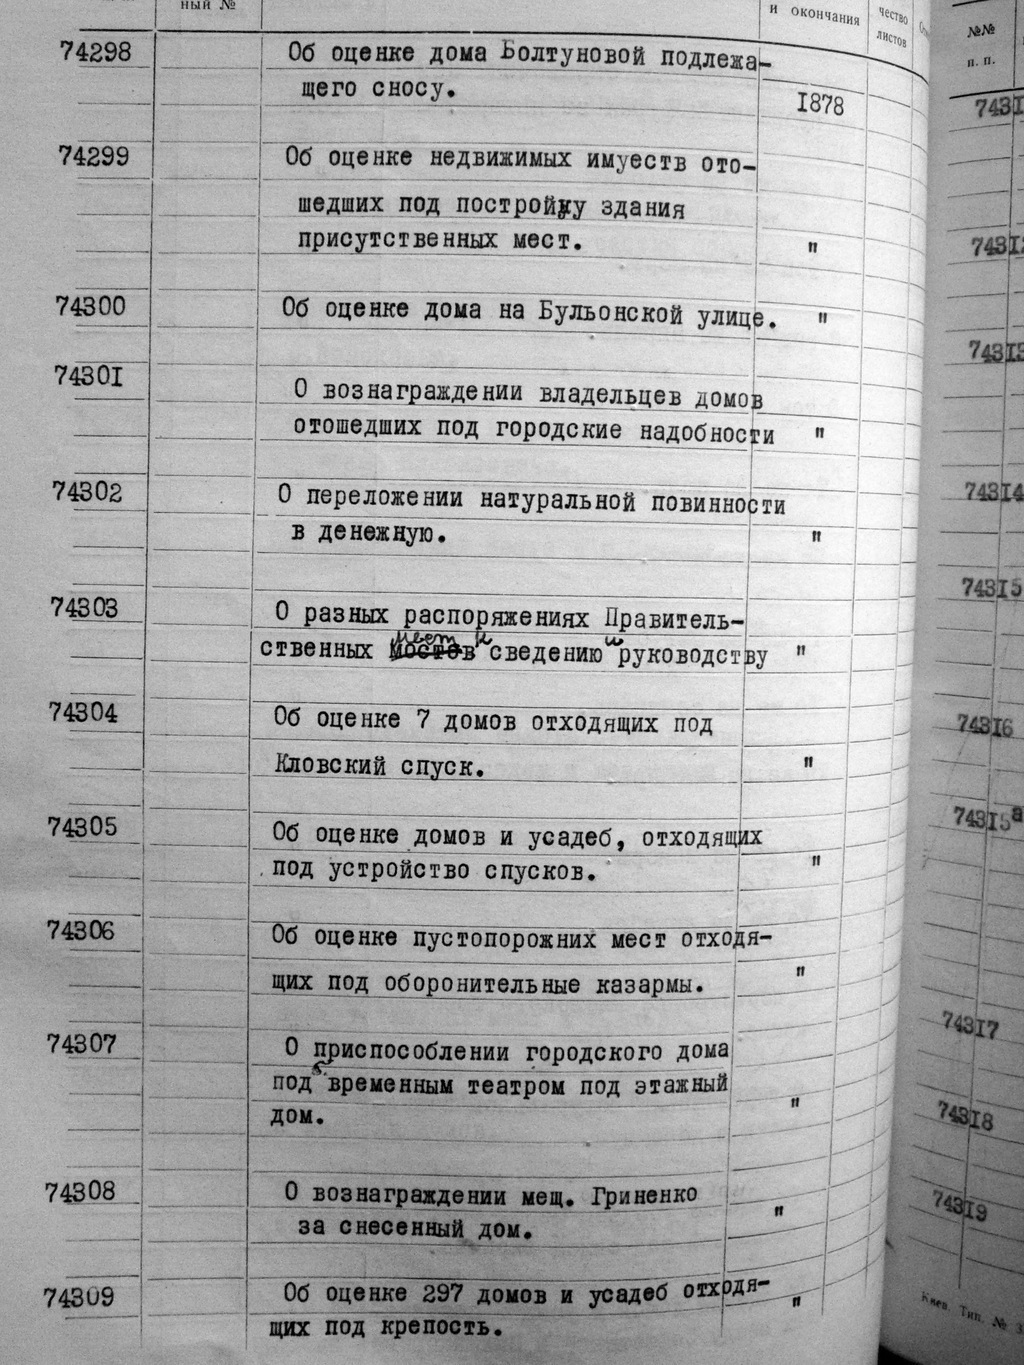 ный № и окончания чество листов
74298 Об оценке дома Болтуновой подлежа-
щего сносу. 1878
74299 Об оценке недвижимых имуеств ото-
шедших под постройку здания
присутственных мест. "
74300 Об оценке дома на Бульонской улице. "
74301 О вознаграждении владельцев домов
отошедших под городские надобности "
74302 О переложении натуральной повинности
в денежную. "
74303 О разных распоряжениях Правитель-
ственных мест к сведению и руководству "
74304 Об оценке 7 домов отходящих под
Кловский спуск. "
74305 Об оценке домов и усадеб, отходящих
под устройство спусков. "
74306 Об оценке пустопорожних мест отходя-
щих под оборонительные казармы. "
74307 О приспособлении городского дома
под временным театром под этажный
дом. "
74308 О вознаграждении мещ. Гриненко
за снесенный дом. "
74309 Об оценке 297 домов и усадеб отходя-
щих под крепость. "
№№
п. п.
7431
7431
74313
74314
74315
74316
74315а
74317
74318
74319
Киев. Тип. №